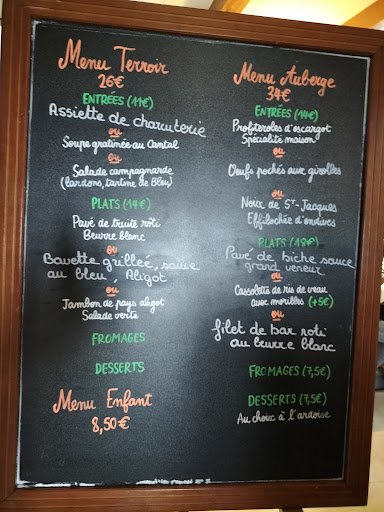 Menu Terroir
26€
ENTRÉES (11€)
Assiette de charcuterie
ou
Soupe gratinée au Cantal
ou
Salade campagnarde
(lardons, tartine de Bleu)
PLATS (14€)
Pavé de truite roti
Beurre blanc
ou
Bavette grillée, sauce
au bleu, Aligot
ou
Jambon de pays aligot
Salade verte
FROMAGES
DESSERTS
Menu Enfant
8,50€
Menu Auberge
34€
ENTRÉES (14€)
Profiteroles d'escargot
Spécialité maison
ou
Oeufs pochés aux girolles
ou
Noix de St-Jacques
Effilochée d'endives
PLATS (18€)
Pavé de biche sauce
grand veneur
ou
Cassolette de ris de veau
aux morilles (+5€)
ou
filet de bar roti
au beurre blanc
FROMAGES (7,5€)
DESSERTS (7,5€)
Au choix à l'ardoise